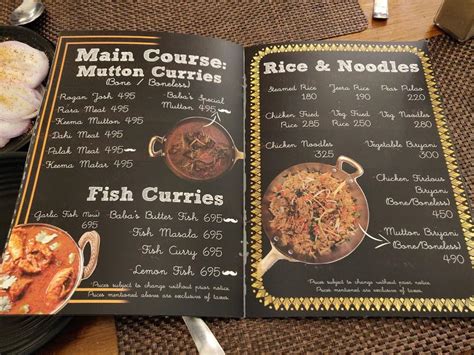 Main Course:
Mutton Curries
(Bone / Boneless)
Rogan Josh 495
Rara Meat 495
Keema Mutton 495
Dahi Meat 495
Palak Meat 495
Keema Matar 495
Baba's Special
Mutton 495
Fish Curries
Garlic Fish
695
Baba's Butter Fish 695
Fish Masala 695
Fish Curry 695
Lemon Fish 695
*Prices subject to change without prior notice.
Prices mentioned above are exclusive of taxes.
Rice & Noodles
Steamed Rice
180
Jeera Rice
190
Peas Pulao
220
Chicken Fried
Rice 285
Veg Fried
Rice 250
Veg Noodles
280
Chicken Noodles
325
Vegetable Bryani
395
Chicken Firdous
Bryani
(Bone/Boneless)
450
Mutton Bryani
(Bone/Boneless)
490
*Prices subject to change without prior notice.
Prices mentioned above are exclusive of taxes.